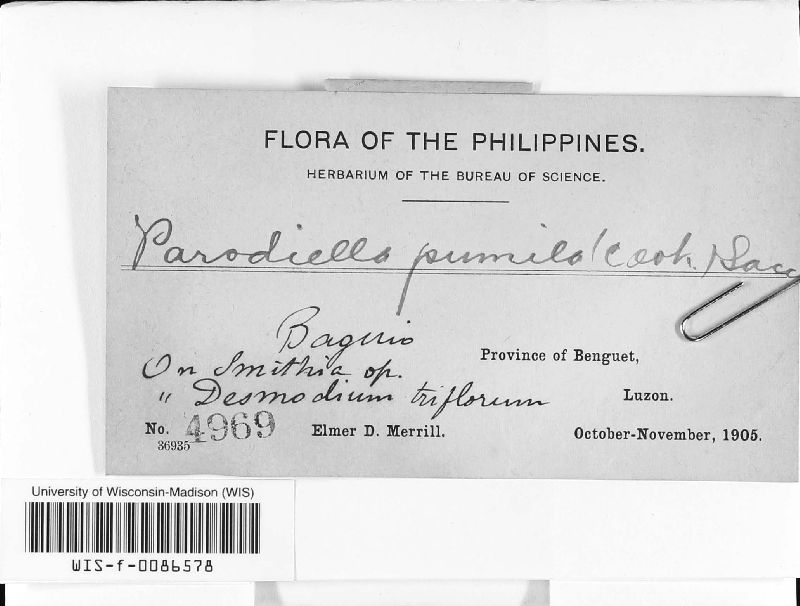 FLORA OF THE PHILIPPINES.
HERBARIUM OF THE BUREAU OF SCIENCE.
Parodiella pumila (Cooh.) Sacc
Baguio
On Smithia sp.
" Desmodium triflorum
Province of Benguet,
Luzon.
No. 4969
36935
Elmer D. Merrill.
October-November, 1905.
University of Wisconsin-Madison (WIS)
WIS-f-0086578